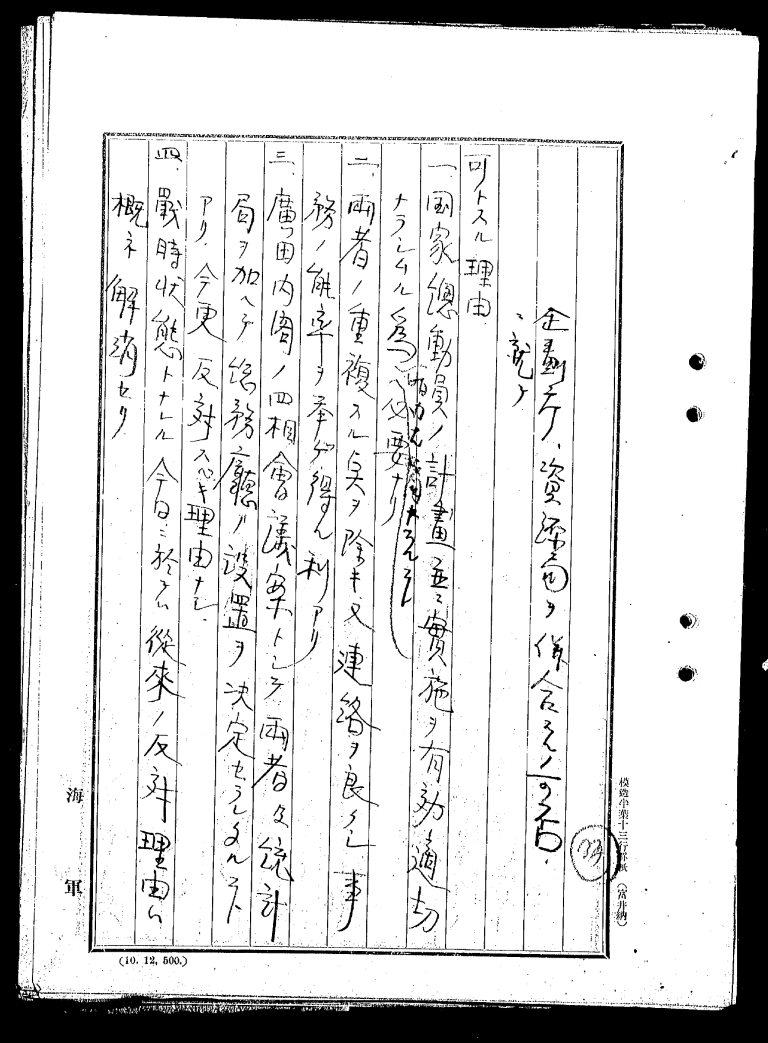 企劃庁、資源局ヲ併合スルノ可否
ニ就テ
可トスル理由
一、国家總動員ノ計畫並ニ實施ヲ有効適切
ナラシムル為必要ナリ
二、両者ノ重複スル点ヲ除キ又連絡ヲ良クシ事
務ノ能率ヲ挙ゲ得ル利アリ
三、廣田内閣ノ四相會議案トシテ両者及統計
局ヲ加ヘテ總務廳ノ設置ヲ決定セラレタルコト
アリ、今更反対スベキ理由ナシ
四、戰時状態トナレル今日ニ於テハ從来ノ反対理由ハ
概ネ解消セリ
海軍
模造半葉十三行罫紙(富井納)
(10. 12, 500.)